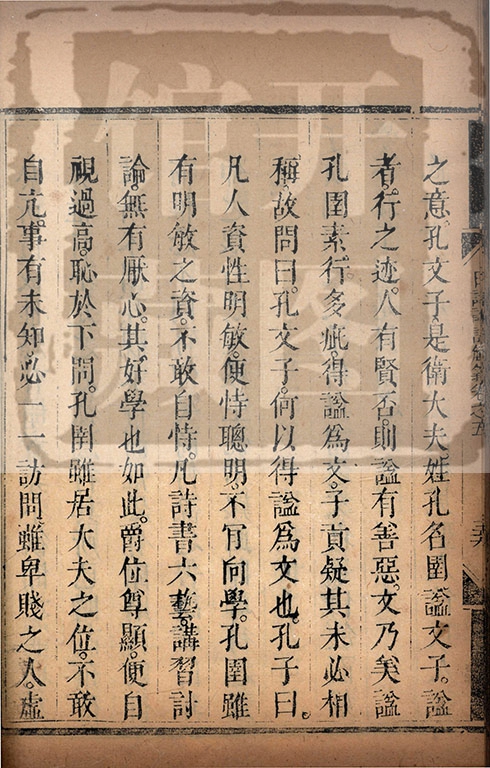 之意。孔文子是衛大夫。姓孔名圉。謚文子。謚
者。行之迹。人有賢否。則謚有善惡。文乃美謚
孔圉素行。多疵。得謚為文。子貢疑其未必相
稱。故問曰。孔文子。何以得謚為文也。孔子曰。
凡人資性明敏。便恃聰明。不肎向學。孔圉雖
有明敏之資。不敢自恃。凡詩書六藝。講習討
論。無有厭心。其好學也如此。爵位尊顯。便自
視過高。恥於下問。孔圉雖居大夫之位。不敢
自亢。事有未知。必一一訪問。雖卑賤之人。虛